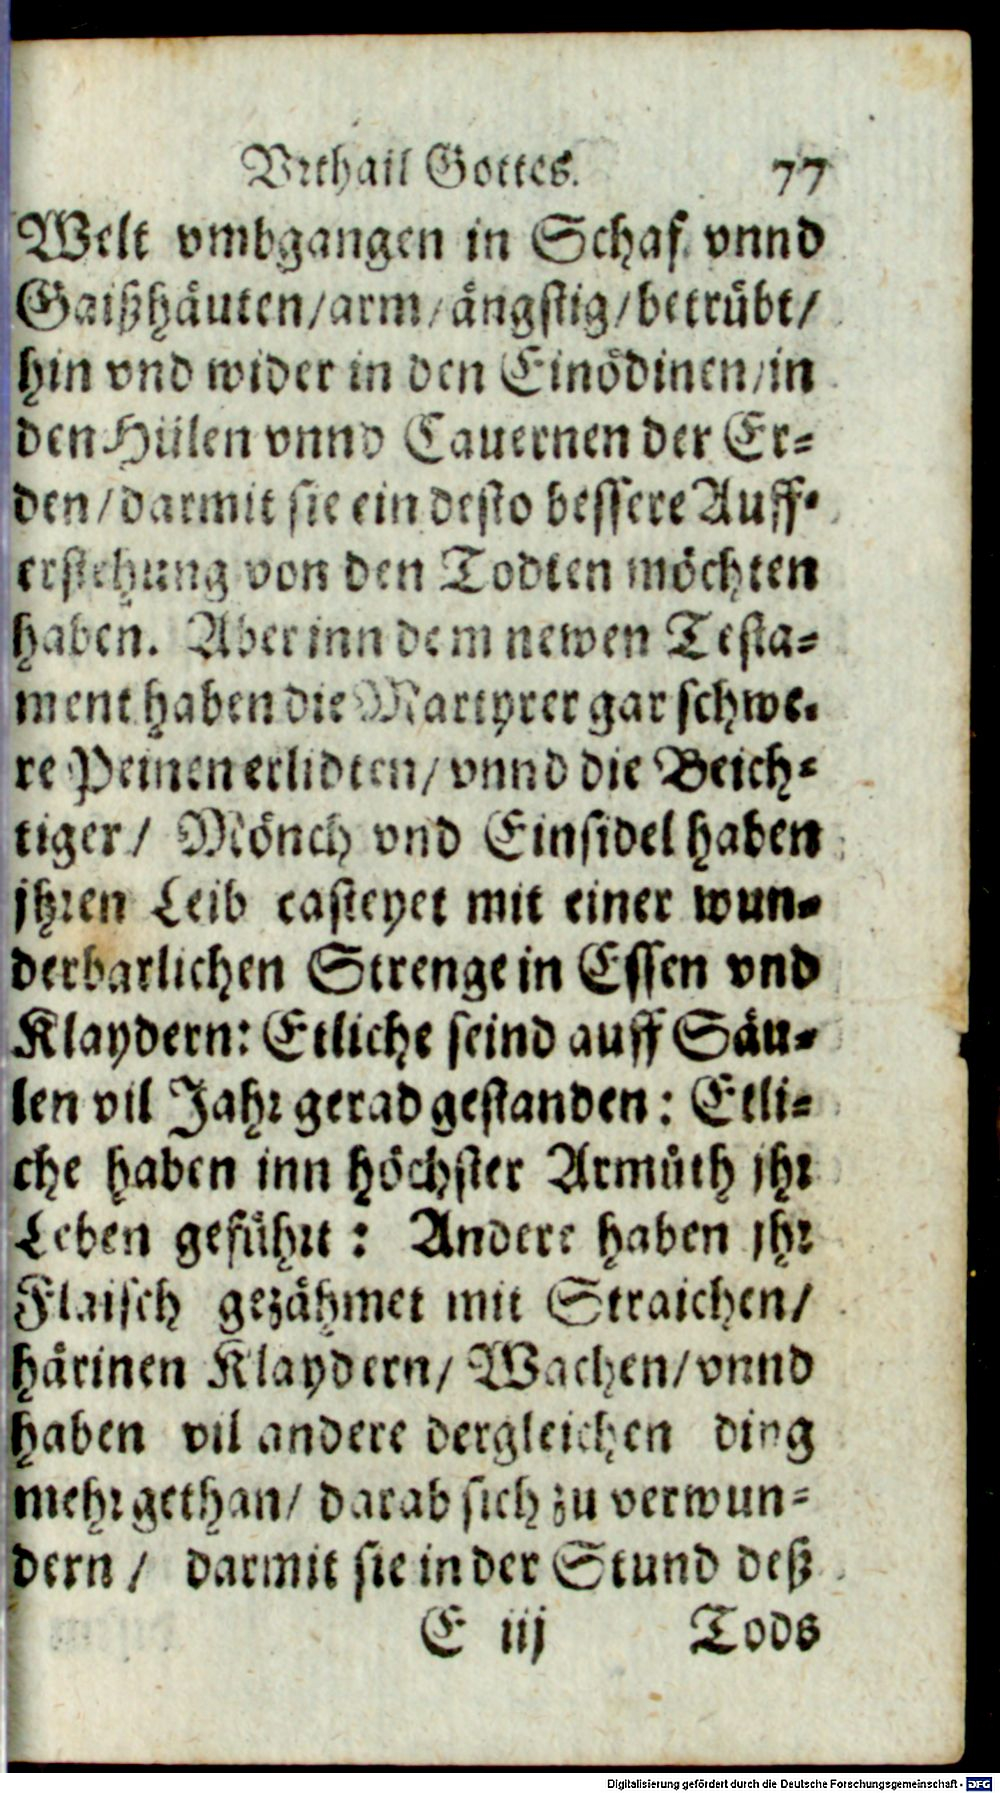 Vrthail Gottes. 77
Welt vmbgangen in Schaf vnnd
Gaißhäuten/arm/ängstig/betrübt/
hin vnd wider in den Einödinen/in
den Hülen vnnd Cauernen der Er-
den/darmit sie ein desto bessere Auff-
erstehung von den Todten möchten
haben. Aber inn dem newen Testa-
ment haben die Martyrer gar schwe-
re Peinen erlidten/vnnd die Beich-
tiger/ Mönch vnd Einsidel haben
jhren Leib casteyet mit einer wun-
derbarlichen Strenge in Essen vnd
Klaydern: Etliche seind auff Säu-
len vil Jahr gerad gestanden: Etli-
che haben inn höchster Armůth jhr
Leben geführt: Andere haben jhr
Flaisch gezähmet mit Straichen/
härinen Klaydern/ Wachen/vnnd
haben vil andere dergleichen ding
mehr gethan/ darab sich zu verwun-
dern/ darmit sie in der Stund deß
E iij Tods
Digitalisierung gefördert durch die Deutsche Forschungsgemeinschaft - DFG